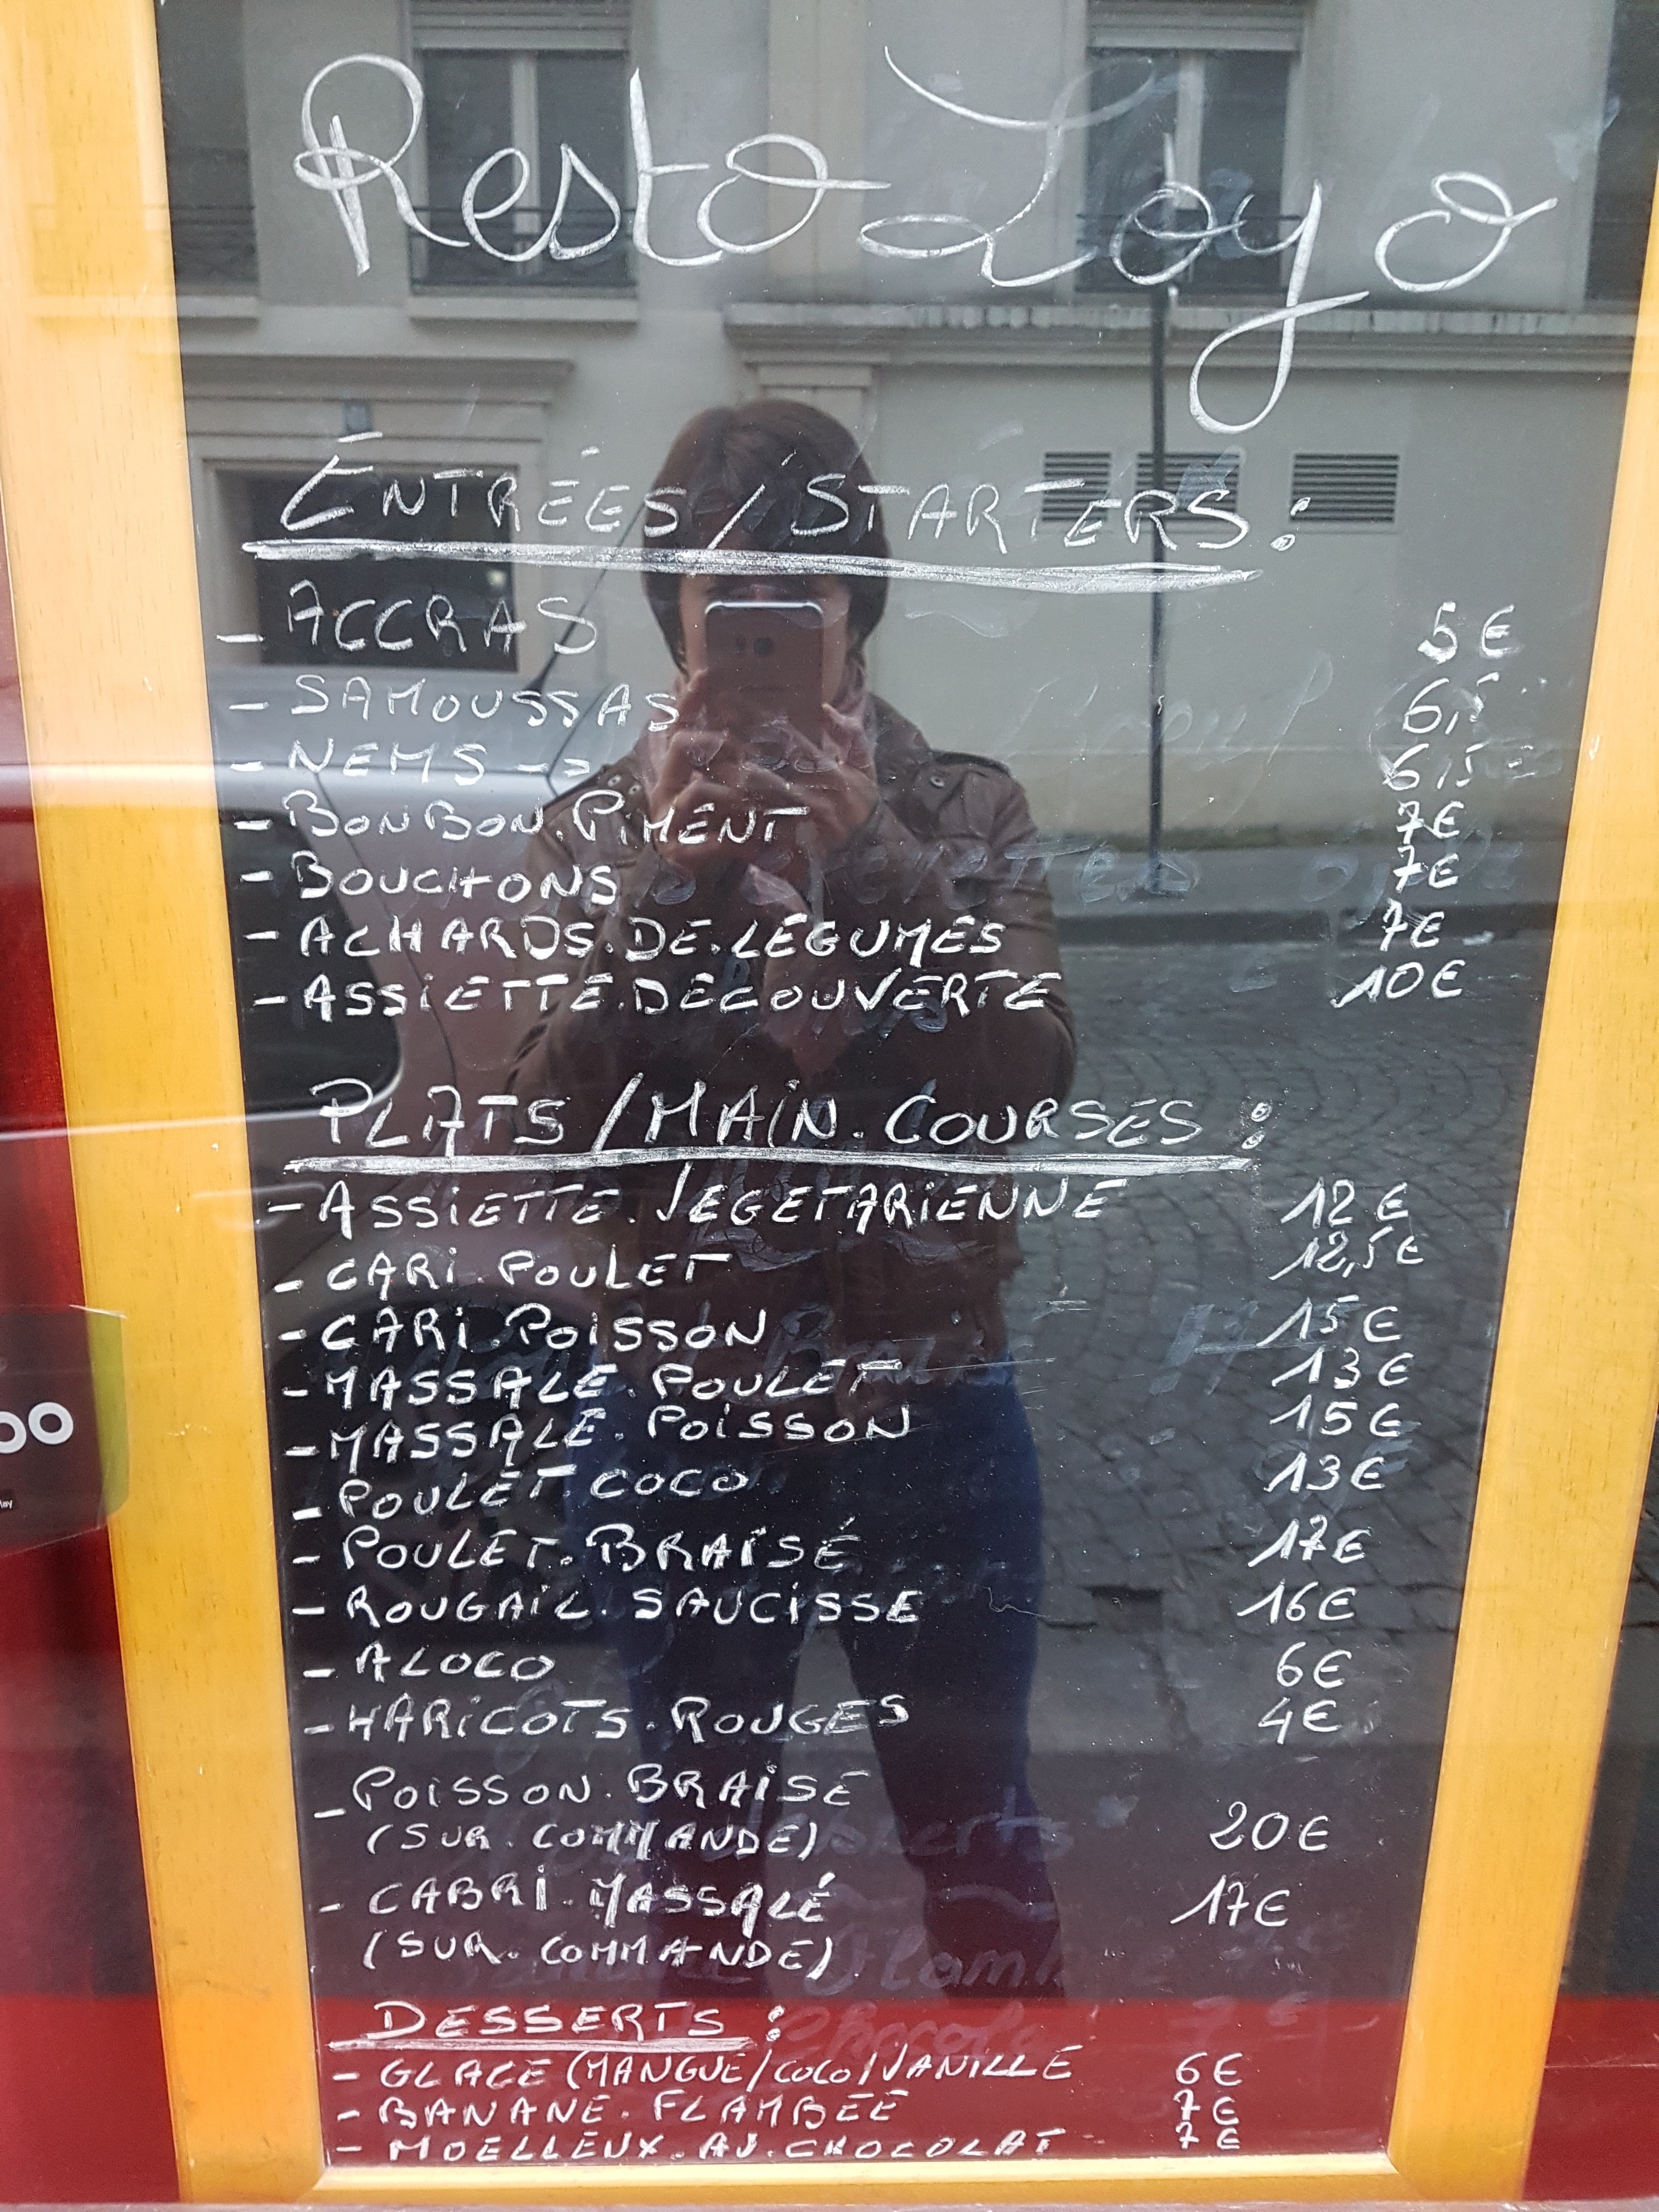 Resto Loyo
ENTRÉES / STARTERS :
- ACCRAS 5€
- SAMOUSSAS 6,5
- NEMS 6,5
- BONBON.PIMENT 7€
- BOUCHONS 7€
- ACHARDS.DE.LÉGUMES 7€
- ASSIETTE.DECOUVERTE 10€
PLATS / MAIN.COURSES :
- ASSIETTE.VEGETARIENNE 12€
- CARI.POULET 12,5€
- CARI.POISSON 15€
- MASSALE.POULET 13€
- MASSALE.POISSON 15€
- POULET.COCO 13€
- POULET.BRAISÉ 17€
- ROUGAIL.SAUCISSE 16€
- ALOCO 6€
- HARICOTS.ROUGES 4€
- POISSON.BRAISE
(SUR.COMMANDE) 20€
- CABRI.MASSALÉ 17€
(SUR.COMMANDE)
DESSERTS :
- GLACE (MANGUE/COCO/VANILLE 6€
- BANANE.FLAMBÉE 7€
- MOELLEUX.AU.CHOCOLAT 7€